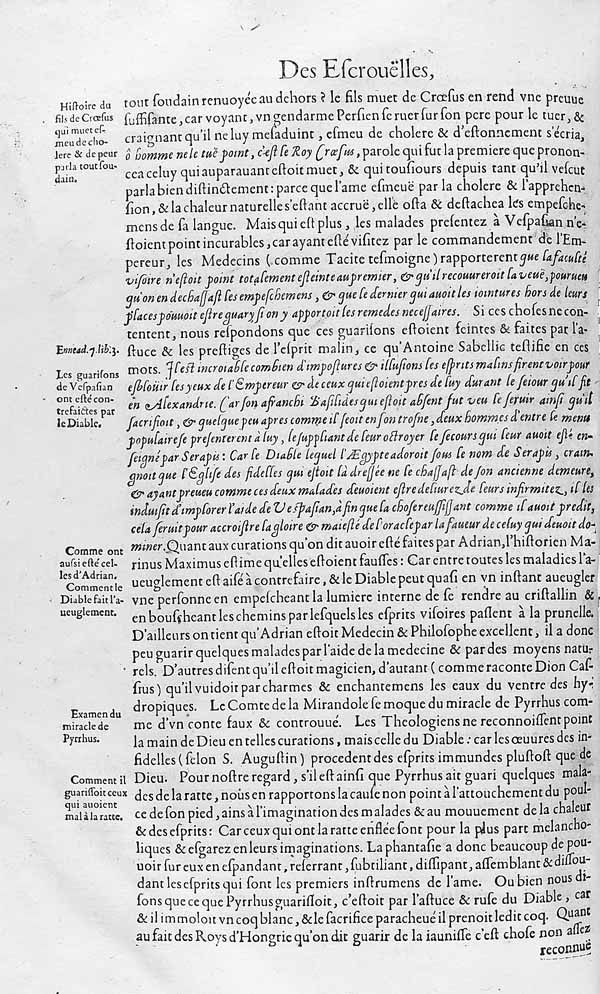 Des Eſcrouëlles,
Hiſtoire du
fils de Crœſus
qui muet eſ-
meu de cho-
lere & de peur
parla tout ſou-
dain.
tout ſoudain renuoyée au dehors ? le fils muet de Crœſus en rend vne preuue
ſuffiſante, car voyant, vn gendarme Perſien ſe ruer ſur ſon pere pour le tuer, &
craignant qu'il ne luy meſaduint, eſmeu de cholere & d'eſtonnement s'écria,
ô homme ne le tuë point, c'eſt le Roy Crœſus, parole qui fut la premiere que pronon-
cea celuy qui auparauant eſtoit muet, & qui touſiours depuis tant qu'il veſcut
parla bien diſtinctement : parce que l'ame eſmeuë par la cholere & l'apprehen-
ſion, & la chaleur naturelle s'eſtant accruë, elle oſta & deſtachea les empeſche-
mens de ſa langue. Mais qui eſt plus, les malades preſentez à Veſpaſian n'e-
ſtoient point incurables, car ayant eſté viſitez par le commandement de l'Em-
pereur, les Medecins (comme Tacite teſmoigne) rapporterent que la faculté
viſoire n'eſtoit point totalement eſteinte au premier, & qu'il recouureroit la veuë, pourueu
qu'on en dechaſſaſt les empeſchemens, & que le dernier qui auoit les iointures hors de leurs
places pouuoit eſtre guary ſi on y apportoit les remedes neceſſaires. Si ces choſes ne con-
tentent, nous reſpondons que ces guariſons eſtoient feintes & faites par l'a-
Ennead. 7. lib. 3.
ſtuce & les preſtiges de l'eſprit malin, ce qu'Antoine Sabellic teſtifie en ces
Les guariſons
de Veſpaſian
ont eſté con-
trefaictes par
le Diable.
mots. Il eſt incroiable combien d'impoſtures & illuſions les eſprits malins firent voir pour
eſbloüir les yeux de l'Empereur & de ceux qui eſtoient pres de luy durant le ſeiour qu'il fit
en Alexandrie. Car ſon affranchi Baſilides qui eſtoit abſent fut veu le ſeruir ainſi qu'il
ſacrifioit, & quelque peu apres comme il ſeoit en ſon troſne, deux hommes d'entre le menu
populaire ſe preſenterent à luy, le ſuppliant de leur octroyer le ſecours qui leur auoit eſté en-
ſeigné par Serapus : Car le Diable lequel l'Ægypte adoroit ſous le nom de Serapus, craim-
gnoit que l'Egliſe des fidelles qui eſtoit là dreſſée ne le chaſſaſt de ſon ancienne demeure,
& ayant preueu comme ces deux malades deuoient eſtre deliurez de leurs infirmitez, il les
induiſit d'implorer l'aide de Veſpaſian, à fin que la choſe reuſſiſſant comme il auoit predit,
cela ſeruit pour accroiſtre la gloire & maieſté de l'oracle par la faueur de celuy qui deuoit do-
miner. Quant aux curations qu'on dit auoir eſté faites par Adrian, l'hiſtorien Ma-
Comme ont
auſsi eſté cel-
les d'Adrian.
Comment le
Diable fait l'a-
ueuglement.
rinus Maximus eſtime qu'elles eſtoient fauſſes : Car entre toutes les maladies l'a-
ueuglement eſt aiſé à contrefaire, & le Diable peut quaſi en vn inſtant aueugler
vne perſonne en empeſcheant la lumiere interne de ſe rendre au criſtallin &
en bouſcheant les chemins par leſquels les eſprits viſoires paſſent à la prunelle.
D'ailleurs on tient qu'Adrian eſtoit Medecin & Philoſophe excellent, il a donc
peu guarir quelques malades par l'aide de la medecine & par des moyens natu-
rels. D'autres diſent qu'il eſtoit magicien, d'autant (comme raconte Dion Caſ-
ſius) qu'il vuidoit par charmes & enchantemens les eaux du ventre des hy-
dropiques. Le Comte de la Mirandole ſe moque du miracle de Pyrrhus com-
Examen du
miracle de
Pyrrhus.
me d'vn conte faux & controuué. Les Theologiens ne reconnoiſſent point
la main de Dieu en telles curations, mais celle du Diable : car les œuures des in-
fidelles (ſelon S. Auguſtin) procedent des eſprits immundes pluſtoſt que de
Comment il
guariſſoit ceux
qui auoient
mal à la ratte.
Dieu. Pour noſtre regard, s'il eſt ainſi que Pyrrhus ait guari quelques mala-
des de la ratte, noùs en rapportons la cauſe non point à l'attouchement du poul-
ce de ſon pied, ains à l'imagination des malades & au mouuement de la chaleur
& des eſprits : Car ceux qui ont la ratte enflée ſont pour la plus part melancho-
liques & eſgarez en leurs imaginations. La phantaſie a donc beaucoup de pou-
uoir ſur eux en eſpandant, reſerrant, ſubtiliant, diſſipant, aſſemblant & diſſou-
dant les eſprits qui ſont les premiers inſtrumens de l'ame. Ou bien nous di-
ſons que ce que Pyrrhus guariſſoit, c'eſtoit par l'aſtuce & ruſe du Diable, car
& il immoloit vn coq blanc, & le ſacrifice paracheué il prenoit ledit coq. Quant
au fait des Roys d'Hongrie qu'on dit guarir de la iauniſſe c'eſt choſe non aſſez
reconnuë